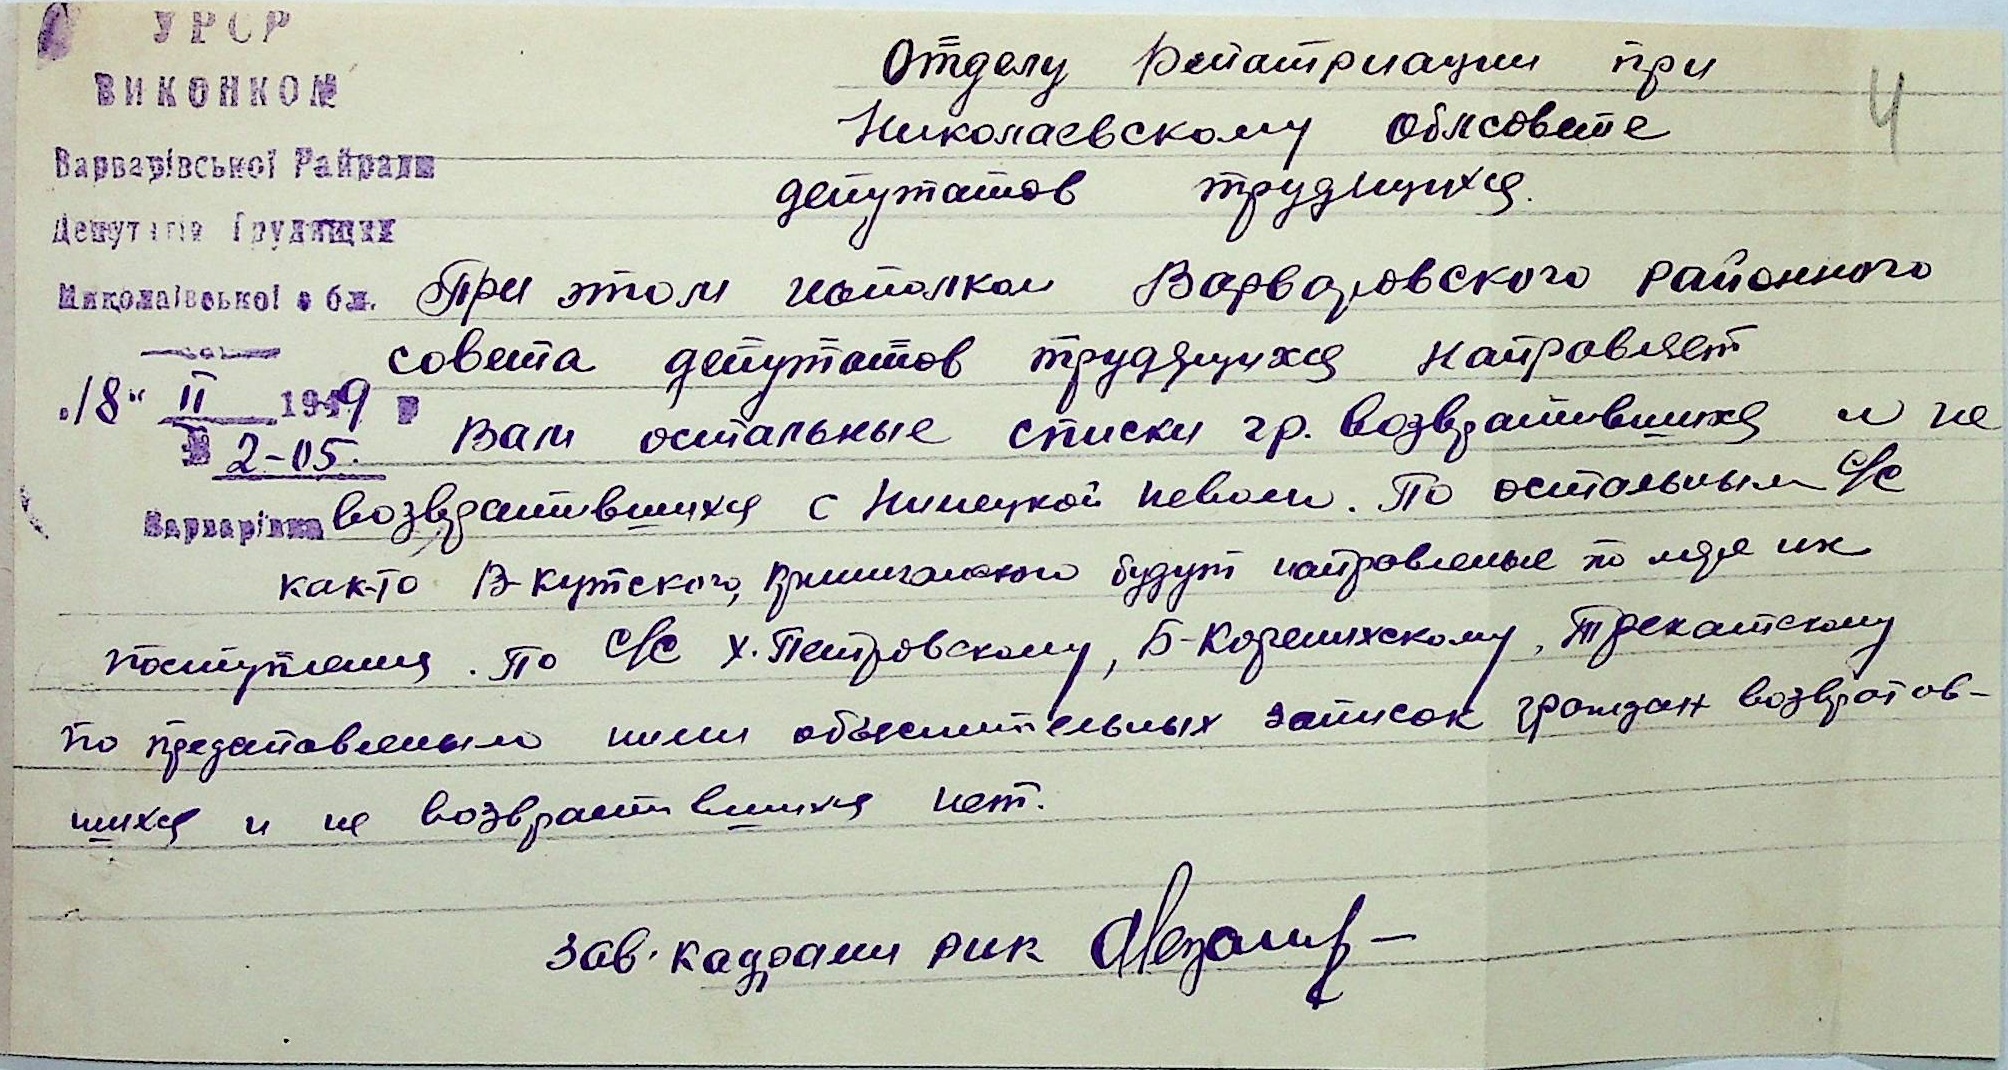 УРСР
ВИКОНКОМ
Варварівської Райради
Депутатів Трудящих
Миколаївської обл.
"18" II 1949 р
№ 2-05.
Варварівка
Отделу Репатриации при
Николаевскому облсовете
депутатов трудящихся.
При этом исполком Варваровского районного
совета депутатов трудящихся направляет
Вам остальные списки гр. возвратившихся и не
возвратившихся с Нимецкой неволи. По остальным с/с
как-то В-Кутского, будут направленые по мере их
поступления. По с/с х. Петровскому, Б-Коренихскому, Трехатскому
по представленым ними объяснительных записок граждан возвратов-
шихся и не возвратившихся нет.
зав. кадрами рик
4